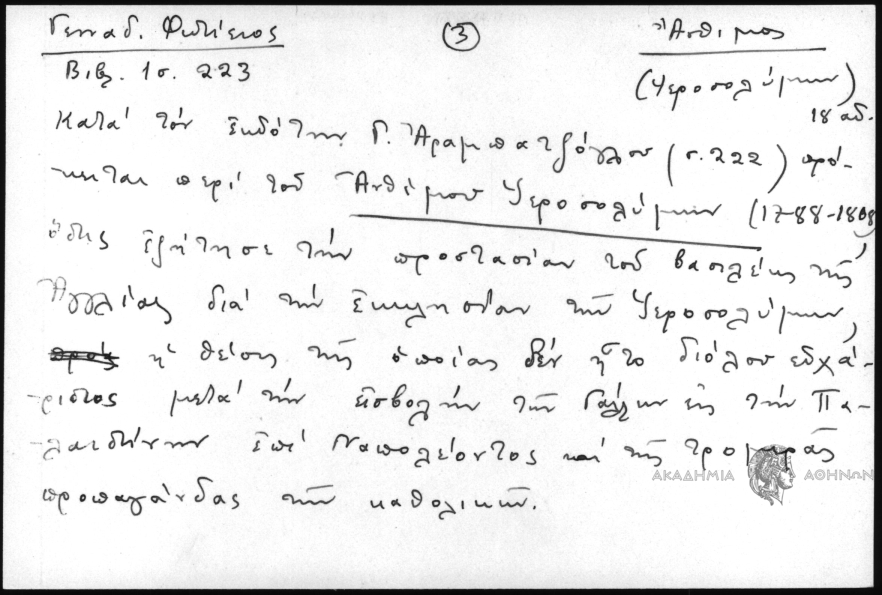 Γενναδ. Φωτίειος ③ Ἄνθιμος
Βιβλ. 1 σ. 223 (Ἱεροσολύμων)
18 αἰ.
Κατά τόν ἐκδότην Γ. Ἀραμπατζόγλου (σ. 222) πρό-
κειται περί τοῦ Ἀνθίμου Ἱεροσολύμων (1788-1808)
ὅστις ἐζήτησε τήν προστασίαν τοῦ βασιλέως τῆς
Ἀγγλίας διά τήν Ἐκκλησίαν τῶν Ἱεροσολύμων,
ἡ θέσις τῆς ὁποίας δέν ἦτο διόλου εὐχά-
ριστος μετά τήν εἰσβολήν τῶν Γάλλων εἰς τήν Πα-
λαιστίνην ἐπί Ναπολέοντος καί τῆς τρομερᾶς
προπαγάνδας τῶν καθολικῶν.
ΑΚΑΔΗΜΙΑ ΑΘΗΝΩΝ